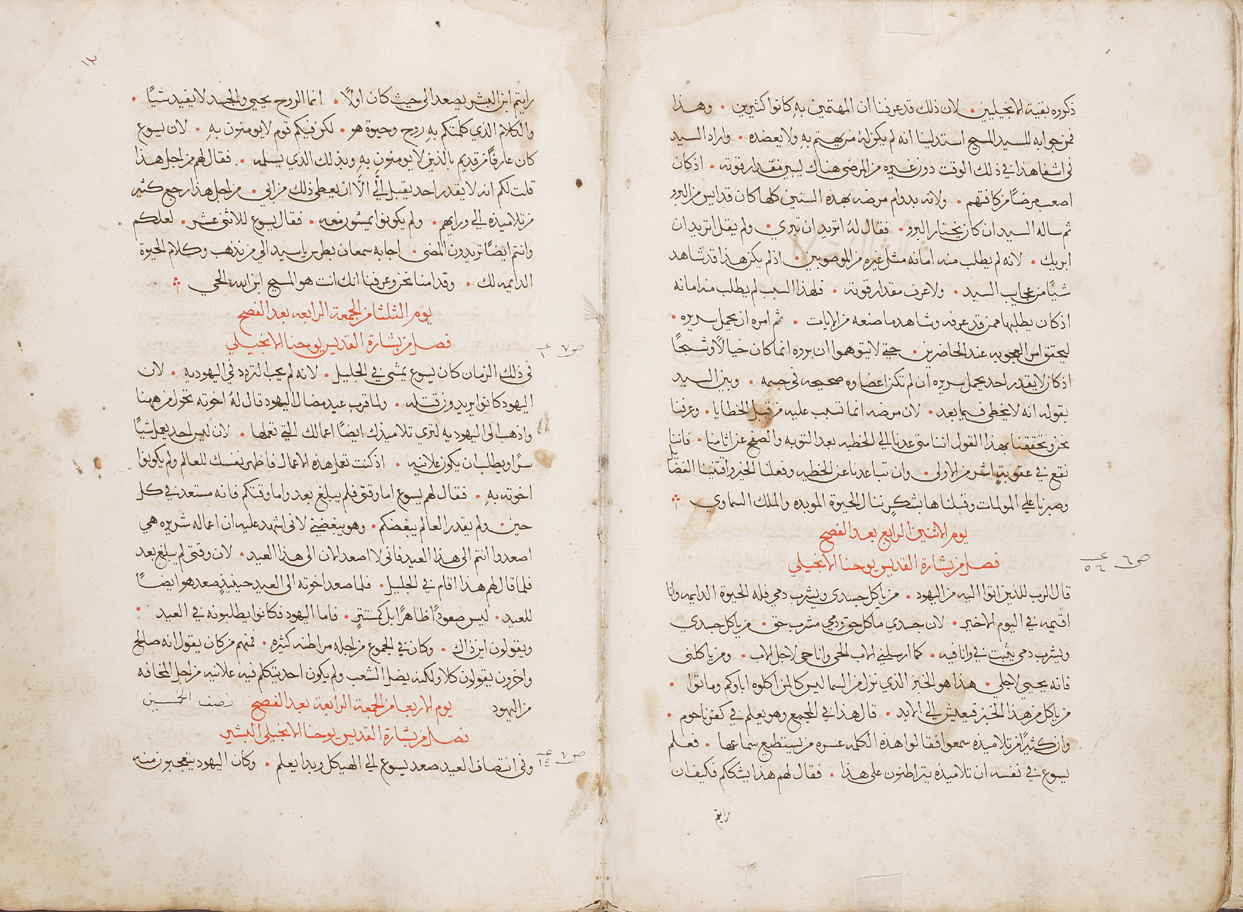 ذكروه بقية الانجيليين. لان ذلك قد عرفنا ان المهتمين به كانوا كثيرين. وهذا
فمن جوابه للسيد المسيح استدلينا انه لم يكن له من يهتم به ولا يعضده. واراد السيد
في اشفا هذا في ذلك الوقت دون غيره من المرضى هناك ليبين مقدار قوته. اذ كان
اصعب مرضًا من كافتهم. ولانه بدوام مرضه بهذه السنين كلها كان قد ايس من البرو
ثم ساله السيد ان كان يختار البرو. فقال له اتريد ان تبري. ولم يقل اتريد ان
ابريك. لانه لم يطلب منه امانه مثل غيره من الموصوبين. اذ لم يكن هذا قد شاهد
شيًا من عجايب السيد. ولا عرف مقدار قوته. فلهذا السبب لم يطلب منه امانه
اذ كان يطلبها ممن قد عرفه وشاهد ما صنعه من الايات. ثم امره ان يحمل سريره.
ليحتقق امر العجوبه عند الحاضرين. حتى لا يتوهموا ان بروه انما كان خيالًا وشبحًا
اذ كان لا يقدر احد يحمل سريره ان لم تكن اعضاوه صحيحه في جسمه. وبين السيد
بقوله انه لا يخطي فيما بعد. لان مرضه انما تسبب عليه من قبل الخطايا. وعرفنا
نحن وتحققنا بهذا القول اننا متى عدنا الي الخطيه بعد التوبه والصفح عن اثامنا. فاننا
نقع في عقوبةٍ اشر من الاولى. وان تباعدنا عن الخطيه وفعلنا الخير واقتنينا الفضا
وصبرنا على المولمات وقبلناها بشكرٍ نلنا الحيوة الموبده والملك السماوي
يوم الاثنين الرابع بعد الفصح
فصل من بشارة القديس يوحنا الانجيلي
ص ٦ ع ٥٤
قال الرب للذين اتوا اليه من اليهود. من ياكل جسدي ويشرب دمي فله الحيوة الدايمه وانا
اقيمه في اليوم الاخير. لان جسدي ماكل حق ودمي مشرب حق. من ياكل جسدي
ويشرب دمي يثبت في وانا فيه. كما ارسلني الاب الحي وانا حي لاجل الاب. ومن ياكلني
فانه يحيي لاجلي. هذا هو الخبز الذي نزل من السما ليس كالمن اكلوه اباوكم وماتوا.
من ياكل من هذا الخبز فيعيش الي الابد. قال هذا في المجمع وهو يعلم في كفرناحوم.
وان كثيرًا من تلاميذه سمعوا فقالوا هذه الكلمه عسره من يستطيع سماعها. فعلم
يسوع في نفسه ان تلاميذه يتراطنون على هذا. فقال لهم هذا يشككم فكيف ان
رايتم
رايتم ابن البشر يصعد الى حيث كان اولًا. انما الروح يحيي والجسد لا يفيد شيًا.
والكلام الذي كلمتكم به روح وحيوة هو. لكن فيكم قوم لا يومنون به. لان يسوع
كان عارفًا من قديم بالذين لا يومنون به وبذلك الذي يسلمه. فقال لهم من اجل هذا
قلت لكم انه لا يقدر احد يقبل الي الا ان يعطى ذلك من ابي. من اجل هذا رجع كثير
من تلاميذه الي ورايهم. ولم يكونوا يمشون معه. فقال يسوع للاثني عشر. لعلكم
وانتم ايضًا تريدون المضي. اجابه سمعان بطرس يا سيد الي من نذهب وكلام الحيوة
الدايمه لك. وقد امنا نحن وعرفنا انك انت هو المسيح ابن الله الحي.
يوم الثلثا من الجمعة الرابعه بعد الفصح
فصل من بشارة القديس يوحنا الانجيلي
ص ٧ ع ١
في ذلك الزمان كان يسوع يمشي في الجليل. لانه لم يحب التردد في اليهوديه. لان
اليهود كانوا يريدون قتله. ولما قرب عيد مضال اليهود قال له اخوته تحول من ههنا
واذهب الى اليهوديه لترى تلاميذك ايضًا اعمالك التي تعملها. لان ليس احد يعمل شيًا
سرًا ويطلب ان يكون علانيه. اذ كنت تعمل هذه الاعمال فاظهر نفسك للعالم ولم يكونوا
اخوته به. فقال لهم يسوع اما وقتي فلم يبلغ بعد واما وقتكم فانه مستعد في كل
حين. ولم يقدر العالم يبغضكم. وهو يبغضني لاني اشهد عليه ان اعماله شريره هي
اصعدوا انتم الى هذا العيد فاني لا اصعد الان الى هذا العيد. لان وقتي لم يبلغ بعد
فلما قال لهم هذا اقام في الجليل. فلما صعد اخوته الى العيد حينيذٍ صعد هو ايضًا
للعيد. ليس صعودًا ظاهرًا بل كمستترٍ. فاما اليهود فكانوا يطلبونه في العيد
ويقولون اين ذاك. وكان في الجموع من اجله مراطنه كثيره. فمنهم من كان يقول انه صالح
واخرون يقولون كلا ولكنه يضل الشعب ولم يكون احد يتكلم فيه علانيه من اجل المخافه
من اليهود
يوم الاربعا من الجمعة الرابعة بعد الفصح
نصف الخمسين
فصل من بشارة القديس يوحنا الانجيلي البشير
ص ٧ ع ١٤
وفي انتصاف العيد صعد يسوع الي الهيكل وبدا يعلم. وكان اليهود يتعجبون منه